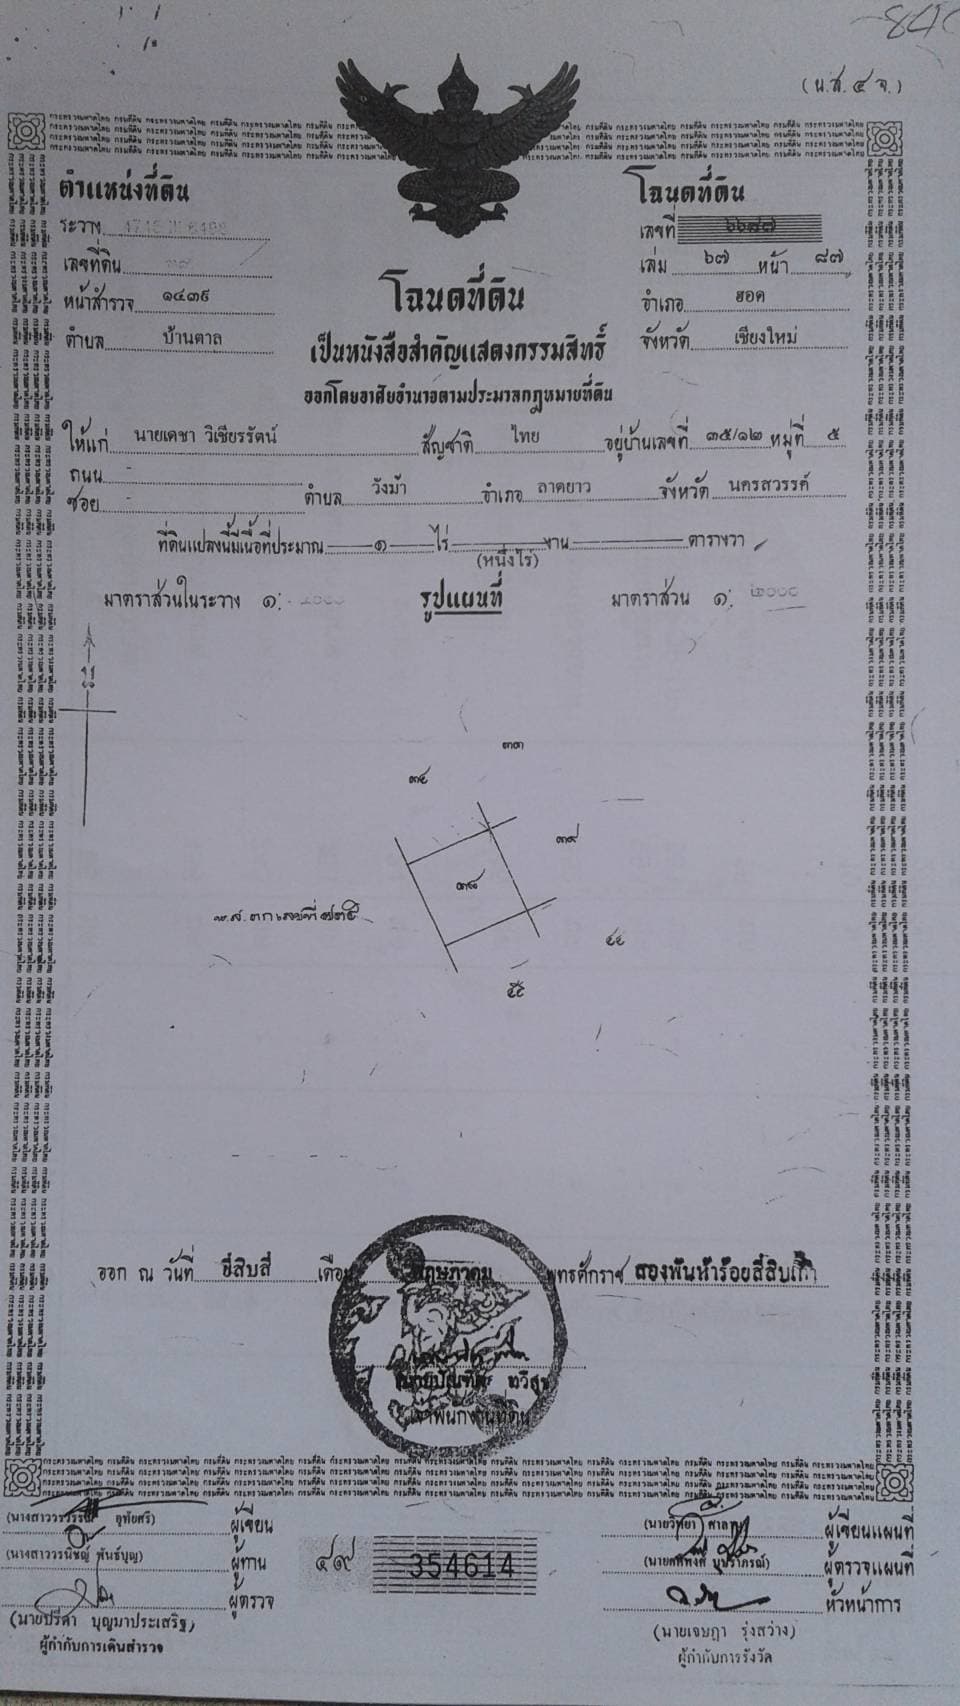 (น.ส. ๔ จ.)
ตำแหน่งที่ดิน
ระวาง
เลขที่ดิน
หน้าสำรวจ ๑๔๓๙
ตำบล บ้านตาล
โฉนดที่ดิน
เลขที่ ๖๖๘๗
เล่ม ๖๗ หน้า ๘๗
อำเภอ ฮอด
จังหวัด เชียงใหม่
โฉนดที่ดิน
เป็นหนังสือสำคัญแสดงกรรมสิทธิ์
ออกโดยอาศัยอำนาจตามประมวลกฎหมายที่ดิน
ให้แก่ นายเดชา วิเชียรรัตน์ สัญชาติ ไทย อยู่บ้านเลขที่ ๓๕/๑๒ หมู่ที่ ๕
ถนน
ซอย ตำบล วังม้า อำเภอ ลาดยาว จังหวัด นครสวรรค์
ที่ดินแปลงนี้มีเนื้อที่ประมาณ ๑ ไร่ งาน ตารางวา
(หนึ่งไร่)
มาตราส่วนในระวาง ๑: รูปแผนที่ มาตราส่วน ๑: ๒๐๐๐
น
๓๓
๓๔
๓๙
๓๘
๔๔
๔๕
ออก ณ วันที่ ยี่สิบสี่ เดือน พฤษภาคม พุทธศักราช สองพันห้าร้อยสี่สิบเก้า
เจ้าพนักงานที่ดิน
อุทัยศรี) ผู้เขียน
พันธ์บุญ) ผู้ทาน
ผู้ตรวจ
(นายปรีดา บุญมาประเสริฐ)
ผู้กำกับการเดินสำรวจ
๔๙ 354614
ผู้เขียนแผนที่
ผู้ตรวจแผนที่
หัวหน้าการ
(นายเจษฎา รุ่งสว่าง)
ผู้กำกับการรังวัด